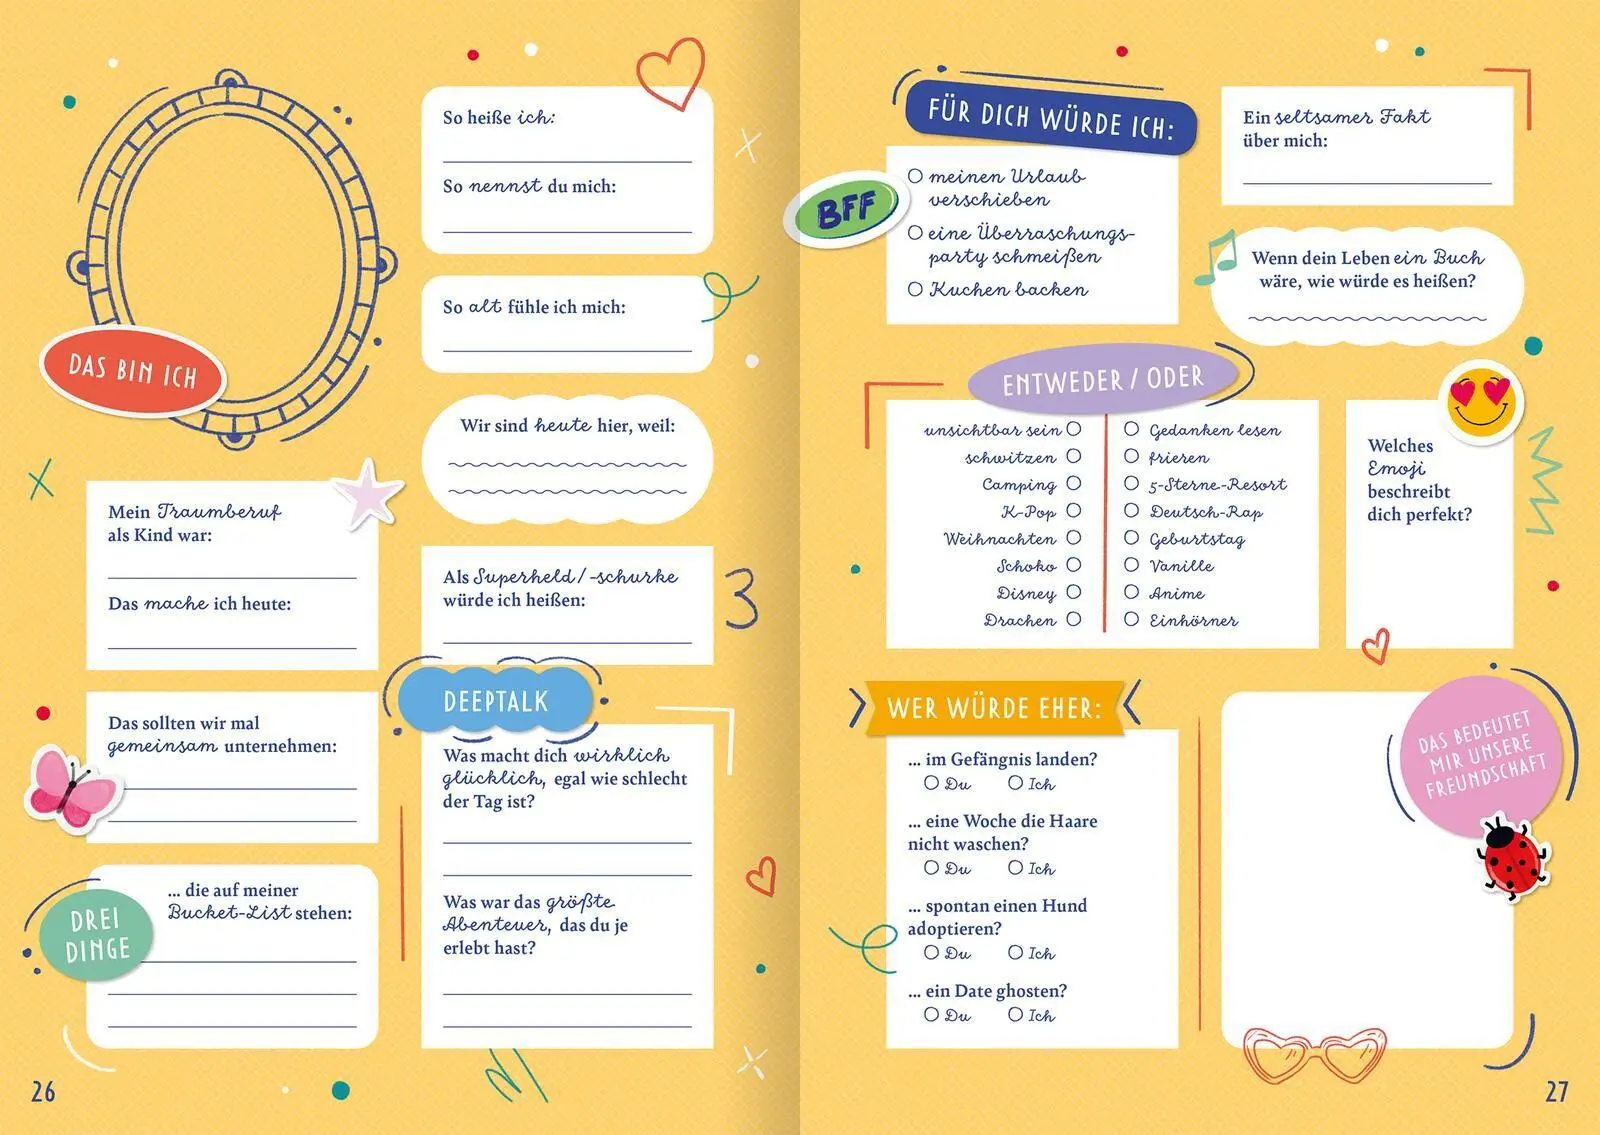 DAS BIN ICH
So heiße ich:
So nennst du mich:
So alt fühle ich mich:
Wir sind heute hier, weil:
Mein Traumberuf
als Kind war:
Das mache ich heute:
Als Superheld/-schurke
würde ich heißen:
Das sollten wir mal
gemeinsam unternehmen:
DREI
DINGE
... die auf meiner
Bucket-List stehen:
DEEPTALK
Was macht dich wirklich
glücklich, egal wie schlecht
der Tag ist?
Was war das größte
Abenteuer, das du je
erlebt hast?
26
FÜR DICH WÜRDE ICH:
BFF
meinen Urlaub
verschieben
eine Überraschungs-
party schmeißen
Kuchen backen
Ein seltsamer Fakt
über mich:
Wenn dein Leben ein Buch
wäre, wie würde es heißen?
ENTWEDER / ODER
unsichtbar sein Gedanken lesen
schwitzen frieren
Camping 5-Sterne-Resort
K-Pop Deutsch-Rap
Weihnachten Geburtstag
Schoko Vanille
Disney Anime
Drachen Einhörner
Welches
Emoji
beschreibt
dich perfekt?
WER WÜRDE EHER:
... im Gefängnis landen?
Du Ich
... eine Woche die Haare
nicht waschen?
Du Ich
... spontan einen Hund
adoptieren?
Du Ich
... ein Date ghosten?
Du Ich
DAS BEDEUTET
MIR UNSERE
FREUNDSCHAFT
27